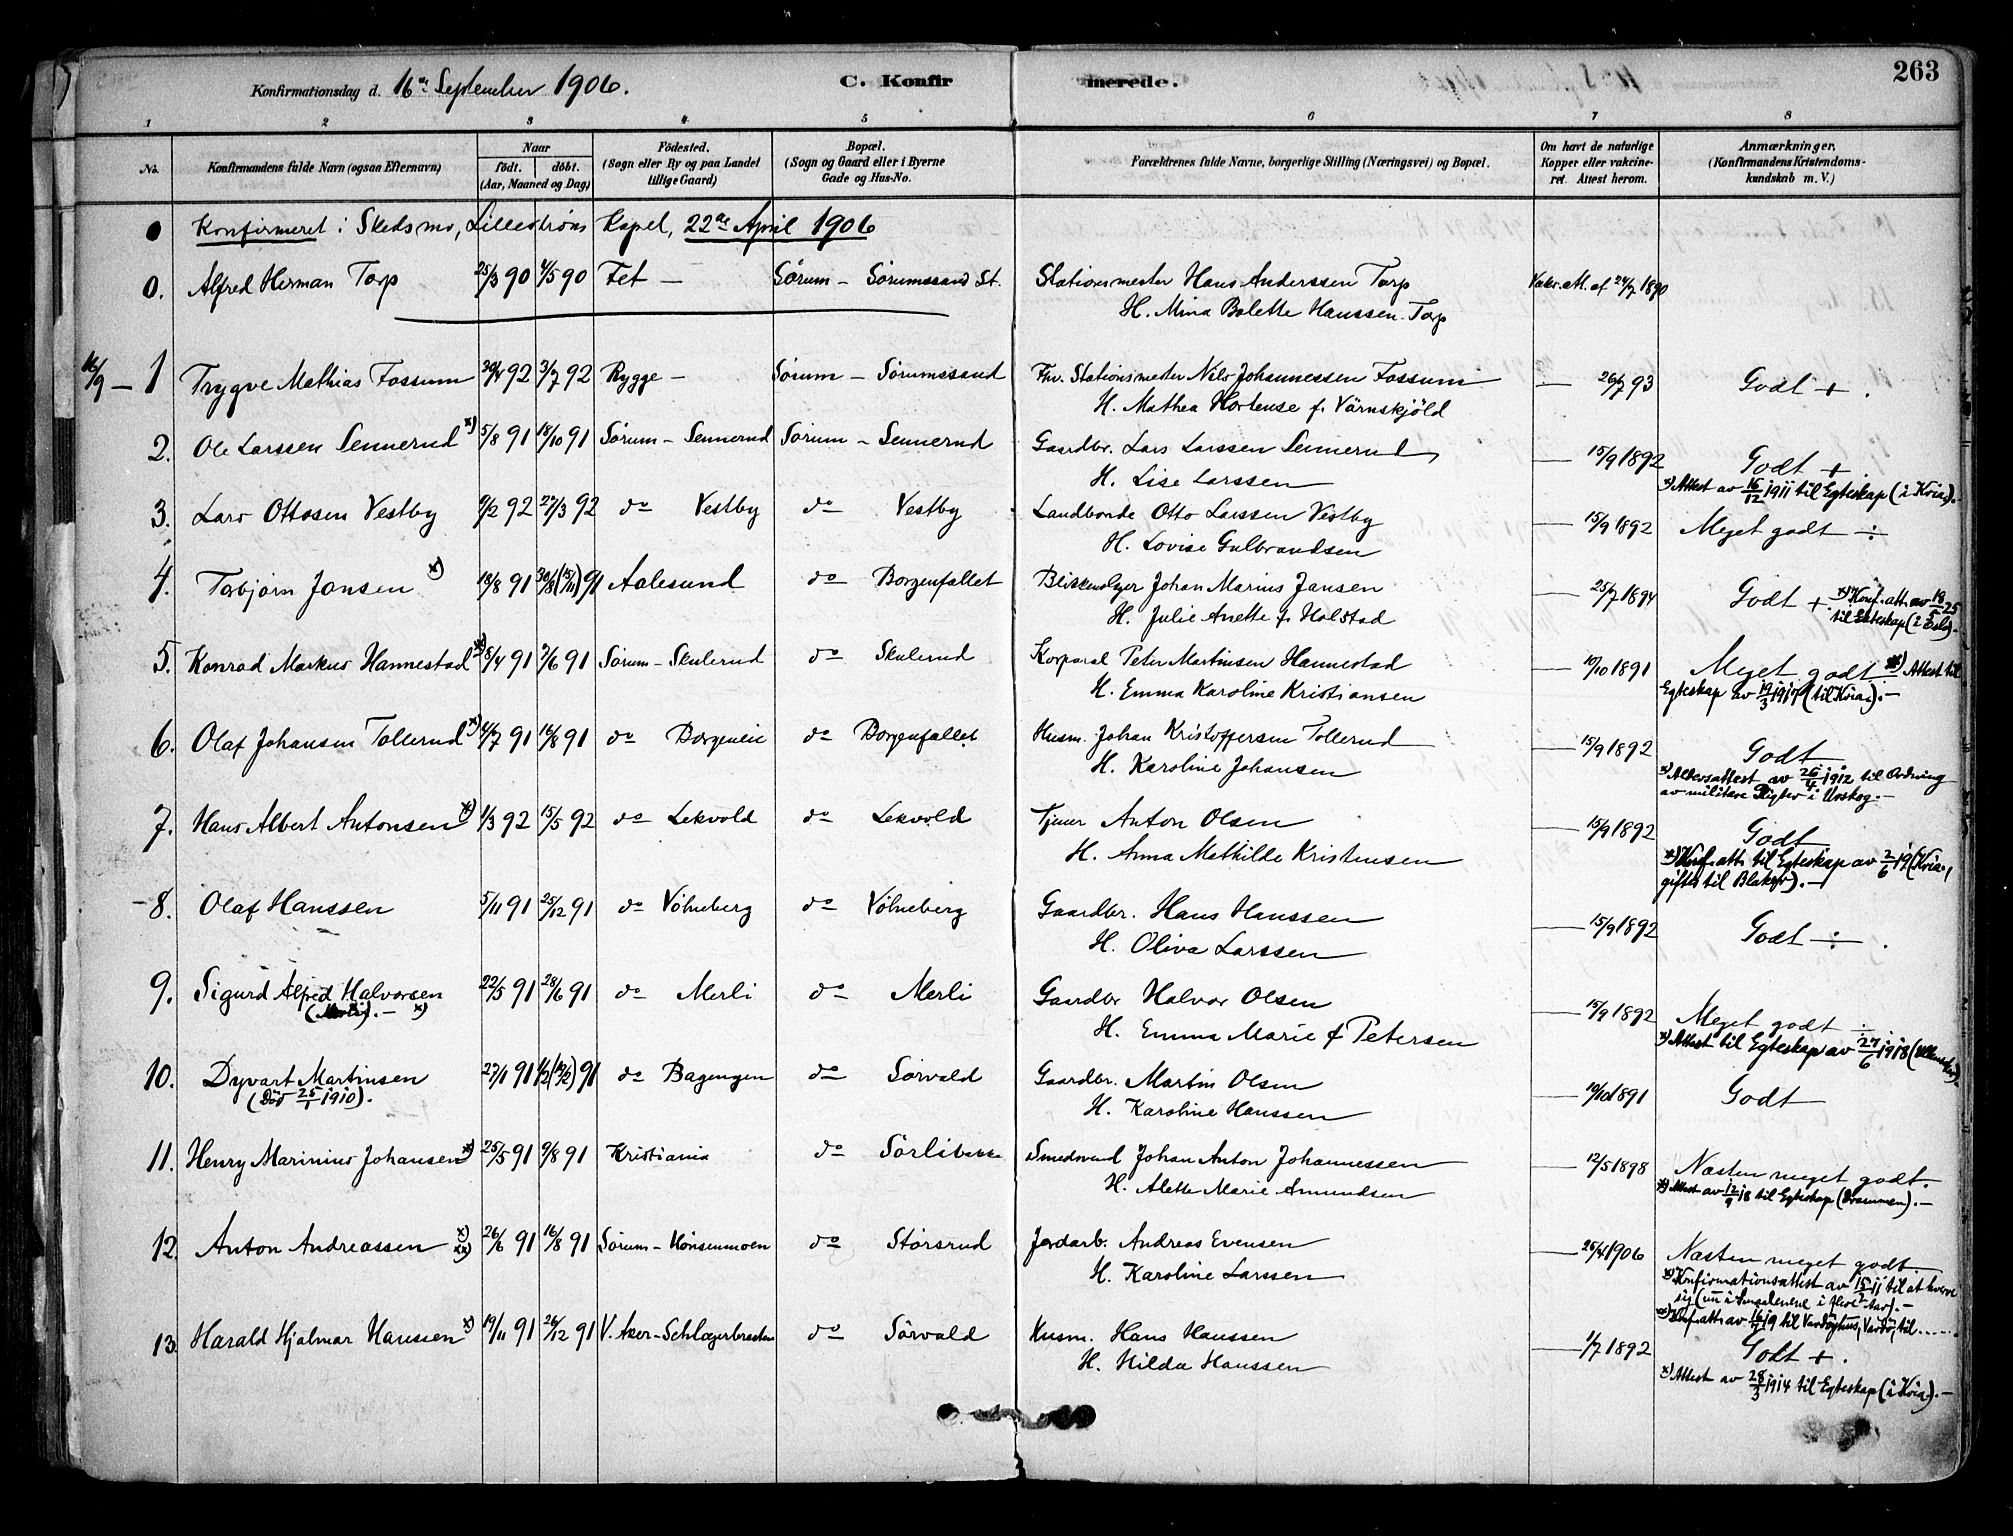 263
Konfirmationsdag d. 16de September 1906.
C. Konfirmerede.
1 2 3 4 5 6 7 8
No.
Konfirmandens fulde Navn (ogsaa Efternavn)
Naar
født. døbt.
(Aar, Maaned og Dag)
Födested.
(Sogn eller By og paa Landet
tillige Gaard)
Bopæl.
(Sogn og Gaard eller i Byerne
Gade og Hus-No.
Forældrenes fulde Navne, borgerlige Stilling (Næringsvei) og Bopæl.
Om havt de naturlige
Kopper eller vakcine-
ret. Attest herom.
Anmærkninger.
(Konfirmandens Kristendoms-
kundskab m. V.)
Konfirmeret i Skedsmo, Lillestrøms Kapel, 22de April 1906
0. Alfred Herman Torp 25/3 90 4/5 90 Fet — Sørum – Sørumssand St. Stationsmester Hans Anderssen Torp Vakc. att. af 24/7 1890
H. Mina Bolette Hanssen Torp
16/9 — 1 Trygve Mathias Fossum 30/4 92 3/7 92 Rygge – Sørum – Sørumssand Fhv. Stationsmester Nils Johannessen Fossum — 26/7 93 Godt +.
H. Mathea Hortense f. Värnskjöld
2. Ole Larssen Sennerud x) 5/8 91 18/10 91 Sørum – Sennerud Sørum – Sennerud Gaardbr. Lars Larssen Sennerud — 15/9 1892 Godt +
H. Lise Larssen x) Attest av 16/12 1911 til Egteskap (i Kria).–
3. Lars Ottosen Vestby 9/2 92 27/3 92 do Vestby do Vestby Landbonde Otto Larssen Vestby — 15/9 1892 Meget godt ÷
H. Lovise Gulbrandsen
4. Torbjørn Jansen x) 18/8 91 30/8 (15/11) 91 Aalesund do Borgenfallet Blikkenslager Johan Marius Jansen — 25/7 1894 Godt +. x) Konf. att. av 18/5 25
H. Julie Anette f. Holstad til Ekteskap (i Oslo).–
5. Konrad Markus Hannestad x) 8/4 91 7/6 91 Sørum – Skulerud do Skulerud Korporal Peter Martinsen Hannestad — 10/10 1891 Meget godt x) Attest til
H. Emma Karoline Kristiansen Egteskap av 19/3 1917 (til Kria).–
6. Olaf Johansen Tollerud x) 4/7 91 16/8 91 do Borgeneie do Borgenfallet Husm. Johan Kristoffersen Tollerud — 15/9 1892 Godt
H. Karoline Johansen x) Aldersattest av 26/4 1912 til Ordning
av militære Pligter i Urskog.–
7. Hans Albert Antonsen x) 1/3 92 15/5 92 do Lekvold do Lekvold Tjener Anton Olsen — 15/9 1892 Godt
H. Anna Mathilde Kristensen x) Konf. att. til Egteskap av 2/6 19 (Kria,
giftes til Blaker).–
8. Olaf Hanssen 5/11 91 25/12 91 do Vølneberg do Vølneberg Gaardbr. Hans Hanssen — 15/9 1892 Godt ÷.
H. Oliva Larssen
9. Sigurd Alfred Halvorsen 22/5 91 28/6 91 do Merli do Merli Gaardbr Halvor Olsen — 15/9 1892 Meget godt ÷
(Merli).– x) H. Emma Marie f Petersen x) Attest til Egteskap av 27/6 1918 (Ullensaker).
10. Dyvart Martinsen 27/1 91 1/2 (19/2) 91 do Bagengen do Sørvald Gaardbr. Martin Olsen — 19/10 1891 Godt
(Død 25/1 1910). H. Karoline Hanssen
11. Henry Marinius Johansen x) 25/5 91 9/8 91 Kristiania do Sørlibakke Smedsvend Johan Anton Johannessen — 12/5 1898 Næsten meget godt.
H. Alette Marie Amundsen x) Attest av 12/9 18 til Egteskap (Drammen).–
12. Anton Andreassen x) xx) 26/6 91 16/8 91 Sørum – Hønsenmoen do Størsrud Jordarb. Andreas Evensen — 25/4 1906 Næsten meget godt
H. Karoline Larssen x) Konfirmationsattest av 15/2 11 til at hverve
sig
xx) Konf. att. av 16/7 19 til Vardøhus, Vardø, til ......
13. Harald Hjalmar Hanssen x) 19/11 91 26/12 91 V. Aker – do Sørvald Husm. Hans Hanssen — 1/7 1892 Godt +.
H. Hilda Hanssen x) Attest av 28/3 1914 til Egteskap (i Kria).–